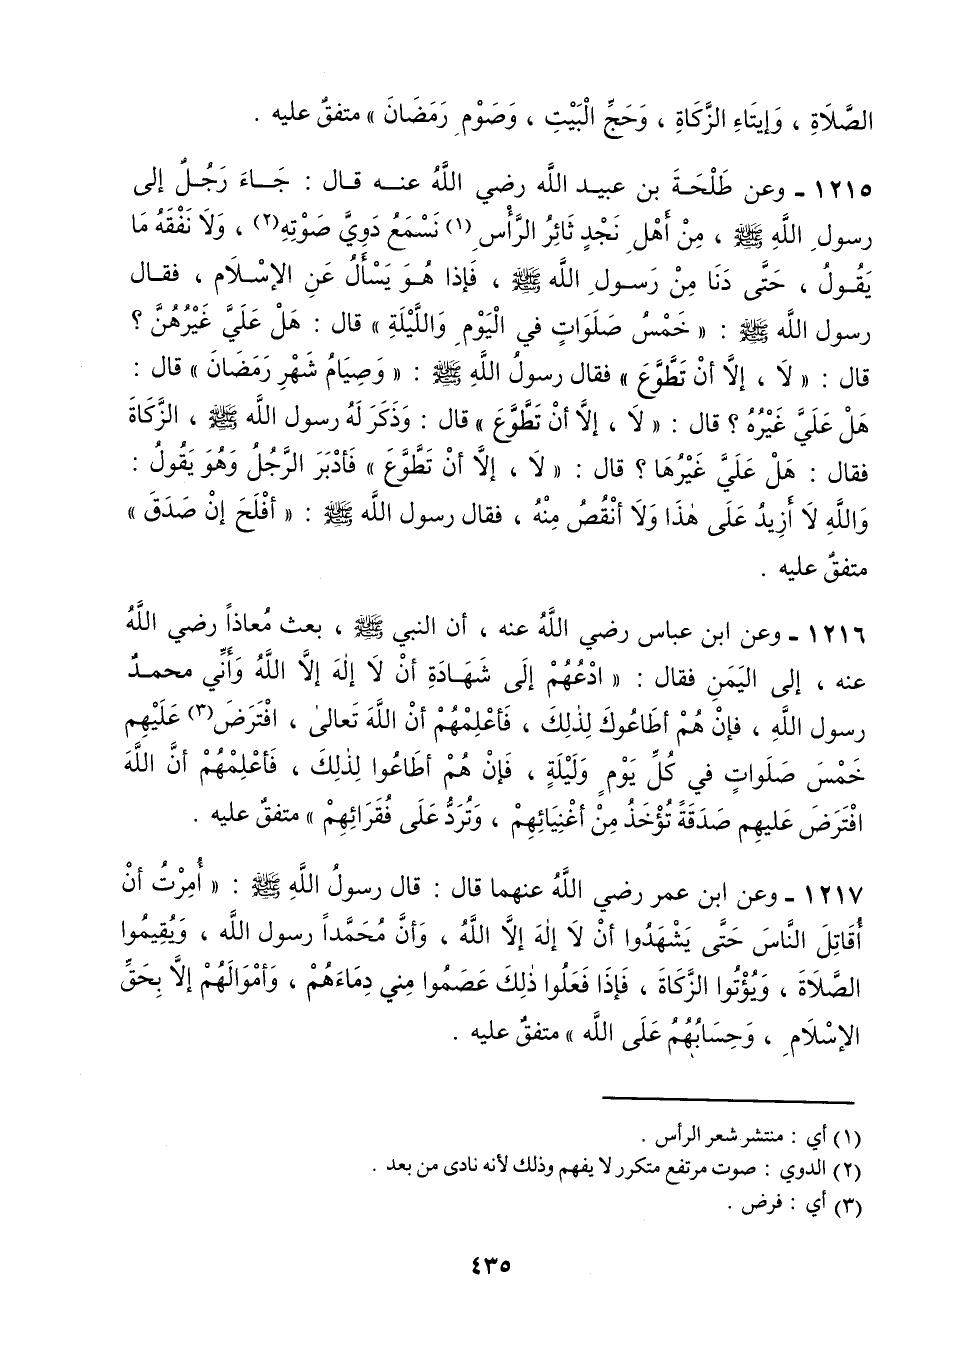 الصَّلَاةِ ، وَإِيتَاءِ الزَّكَاةِ ، وَحَجِّ الْبَيْتِ ، وَصَوْمِ رَمَضَانَ » متفقٌ عليه .
١٢١٥ ـ وعن طَلْحَةَ بن عبيد اللَّه رضي اللَّهُ عنه قال : جَاءَ رَجُلٌ إلى
رسولِ اللَّهِ ﷺ ، مِنْ أَهْلِ نَجْدٍ ثَائِرُ الرَّأْسِ(١) نَسْمَعُ دَوِيَّ صَوْتِهِ(٢) ، وَلَا نَفْقَهُ مَا
يَقُولُ ، حَتَّى دَنَا مِنْ رَسولِ اللَّه ﷺ ، فَإذا هُوَ يَسْأَلُ عَنِ الإسْلَامِ ، فقال
رسول اللَّه ﷺ : « خَمْسُ صَلَوَاتٍ في الْيَوْمِ وَاللَّيْلَةِ » قال : هَلْ عَلَيَّ غَيْرُهُنَّ ؟
قال : « لَا ، إلَّا أنْ تَطَّوَّعَ » فقال رسولُ اللَّهِ ﷺ : « وَصِيَامُ شَهْرِ رَمَضَانَ » قال :
هَلْ عَلَيَّ غَيْرُهُ ؟ قال : « لَا ، إلَّا أنْ تَطَّوَّعَ » قال : وَذَكَرَ لَهُ رسول اللَّه ﷺ ، الزَّكَاةَ
فقال : هَلْ عَلَيَّ غَيْرُهَا ؟ قال : « لَا ، إلَّا أنْ تَطَّوَّعَ » فَأدْبَرَ الرَّجُلُ وَهُوَ يَقُولُ :
وَاللَّهِ لَا أَزِيدُ عَلَى هٰذَا وَلَا أنْقُصُ مِنْهُ ، فقال رسول اللَّه ﷺ : « أفْلَحَ إنْ صَدَقَ »
متفقٌ عليه .
١٢١٦ ـ وعن ابن عباس رضي اللَّهُ عنه ، أن النبي ﷺ ، بعث مُعاذاً رضي اللَّهُ
عنه ، إلى اليَمَنِ فقال : « ادْعُهُمْ إلَى شَهَادَةِ أنْ لَا إلٰهَ إلَّا اللَّهُ وَأَنِّي محمدٌ
رسول اللَّهِ ، فإنْ هُمْ أطَاعُوكَ لِذٰلِكَ ، فَأعْلِمْهُمْ أنْ اللَّهَ تَعالىٰ ، افْتَرَضَ(٣) عَلَيْهِم
خَمْسَ صَلَواتٍ في كُلِّ يَوْمٍ وَلَيْلَةٍ ، فَإنْ هُمْ أطَاعُوا لِذٰلِكَ ، فَأعْلِمْهُمْ أنَّ اللَّهَ
افْتَرَضَ عَليهِم صَدَقَةً تُؤْخَذُ مِنْ أغْنِيَائِهِمْ ، وَتُرَدُّ عَلَى فُقَرَائِهِمْ » متفقٌ عليه .
١٢١٧ ـ وعن ابن عمر رضي اللَّهُ عنهما قال : قال رسولُ اللَّهِ ﷺ : « أُمِرْتُ أنْ
أُقَاتِلَ النَّاسَ حَتَّى يَشْهَدُوا أنْ لَا إلٰهَ إلَّا اللَّهُ ، وَأنَّ مُحَمَّداً رسول اللَّه ، وَيُقِيمُوا
الصَّلَاةَ ، وَيُؤْتُوا الزَّكَاةَ ، فَإذَا فَعَلُوا ذٰلِكَ عَصَمُوا مِني دِمَاءَهُمْ ، وَأمْوَالَهُمْ إلَّا بِحَقِّ
الإسْلَامِ ، وَحِسَابُهُمُ عَلَى اللَّه » متفقٌ عليه .
(١) أي : منتشر شعر الرأس .
(٢) الدوي : صوت مرتفع متكرر لا يفهم وذلك لأنه نادى من بعد .
(٣) أي : فرض .
٤٣٥